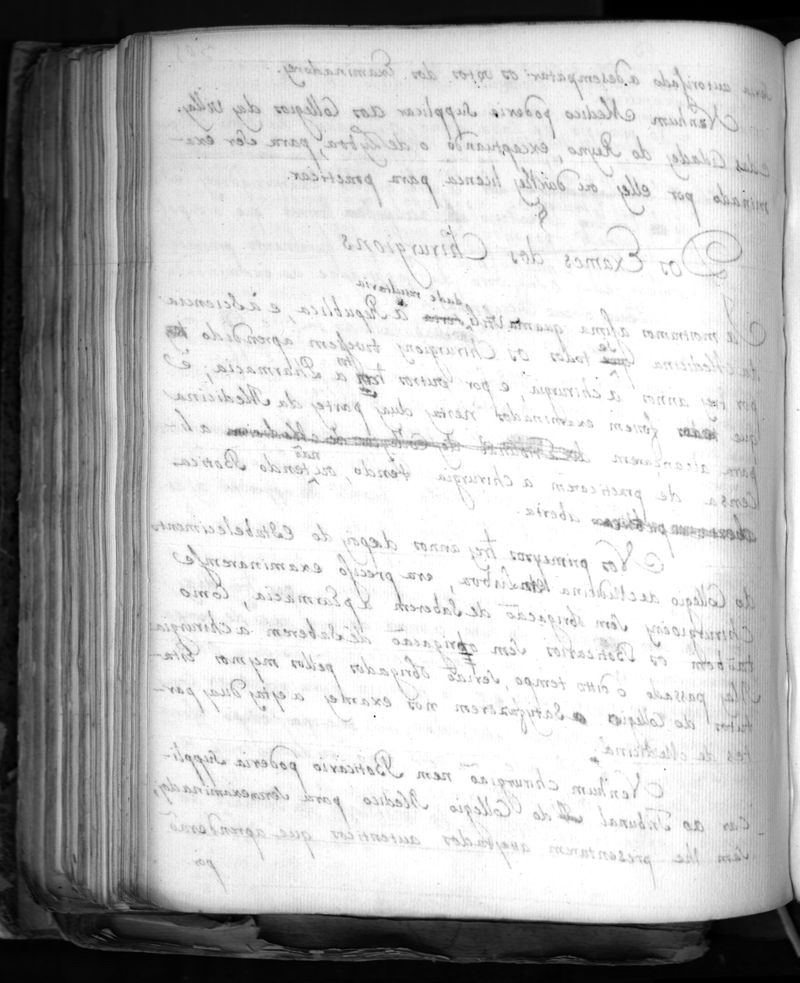 seria autorisado a desempatar os votos dos Examinadores.
Nenhum Medico poderia supplicar aos Collegios das villas,
e das Cidades do Reyno, exceptuando o de Lisboa, para ser exa-
minado por elles, ou darlhes licenca para practicar.
§
Dos Exames dos Chirurgions
Ja mostrimos assima quanta utili
dade resultaria
à Republica, e à Sciencia
da Medicina se todos os Chirurgions tivessem aprendido
por tres annos a chirurgia, e por outros tres a Pharmacia; e
que fossem examinados nestas duas partes da Medicina
para alcançarem do Tribunal do Collegio de Medicina a li-
censa de practicarem a chirurgia tendo, ou não tendo Botica
aberta.
Nos primeyros tres annos depois do Establecimento
do Collegio de Medicina em Lisboa, era preciso examinaremse
Chirurgions sem obrigação de saberem a pharmacia, como
tambem os Boticarios sem obrigação de saberem a chirurgia
Mas passado o ditto tempo, serião obrigados pellos mesmos Esta-
tutos do Collegio a satisfazerem nos exames a estas duas par-
tes da Medicina.
Nenhum chirurgião nem Boticario poderia suppli-
car ao Tribunal do Collegio Medico para ser examinado,
sem lhe presentarem attestados autenticos que aprenderão
por